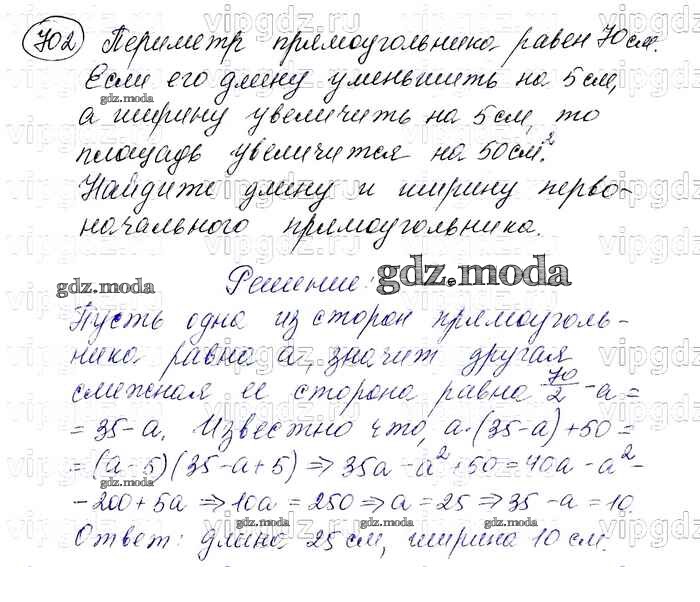 702 Периметр прямоугольника равен 70 см.
Если его длину уменьшить на 5 см,
gdz.moda
а ширину увеличить на 5 см, то
площадь увеличится на 50 см².
Найдите длину и ширину перво-
начального прямоугольника.
Решение:
gdz.moda gdz.moda
Пусть одна из сторон прямоуголь-
ника равна a, значит другая
смежная ее сторона равна 70/2 - a =
= 35 - a. Известно что, a·(35-a)+50 =
= (a-5)(35-a+5) ⇒ 35a - a² + 50 = 40a - a² -
- 200 + 5a ⇒ 10a = 250 ⇒ a = 25 ⇒ 35 - a = 10.
gdz.moda gdz.moda gdz.moda
Ответ: длина 25 см, ширина 10 см.